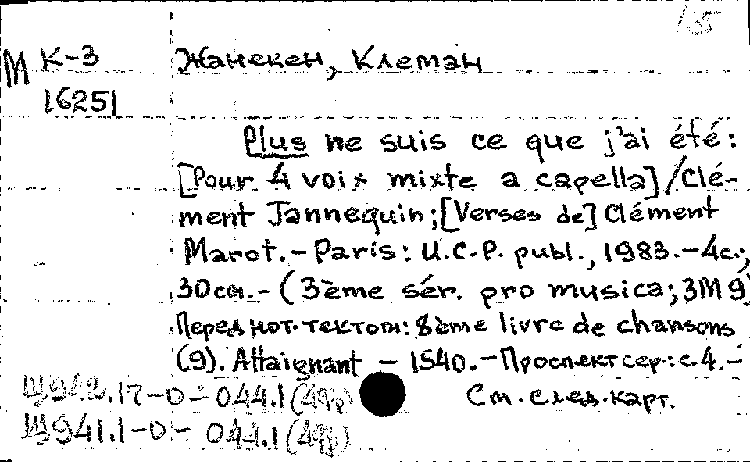 15
М К-3 Жанекен, Клеман
16251
Plus ne suis ce que j'ai été:
[Pour 4 voix mixte a capella]/Clé-
ment Jannequin; [Verses de] Clément
Marot. - Paris: U.C.P. publ., 1983. - 4с.;
30см. - (3ème sér. pro musica; 3M9)
Перед нот. текстом: 8ème livre de chansons
(9). Attaignant - 1540. - Проспект сер.: с.4. -
Щ943.17-0 - 044.1(49ф)
Щ941.1-0 - 044.1(49ф)
См. след. карт.